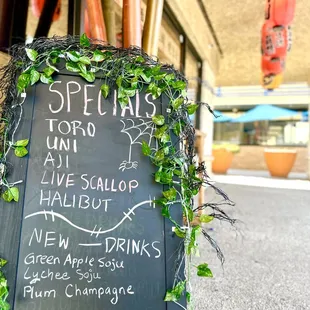 SPECIALS
TORO
UNI
AJI
LIVE SCALLOP
HALIBUT
NEW — DRINKS
Green Apple Soju
Lychee Soju
Plum Champagne